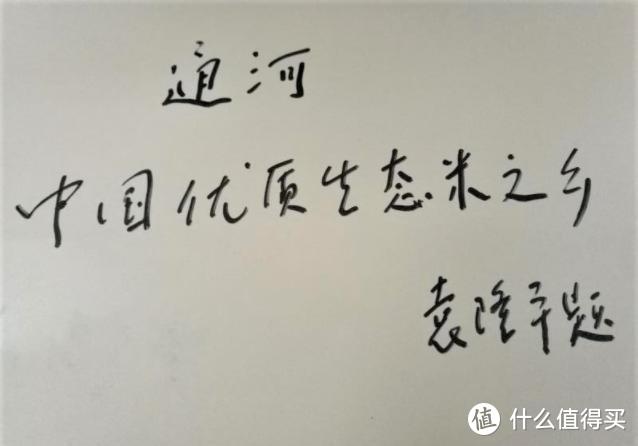 通河
中国优质生态米之乡
袁隆平题
值 什么值得买